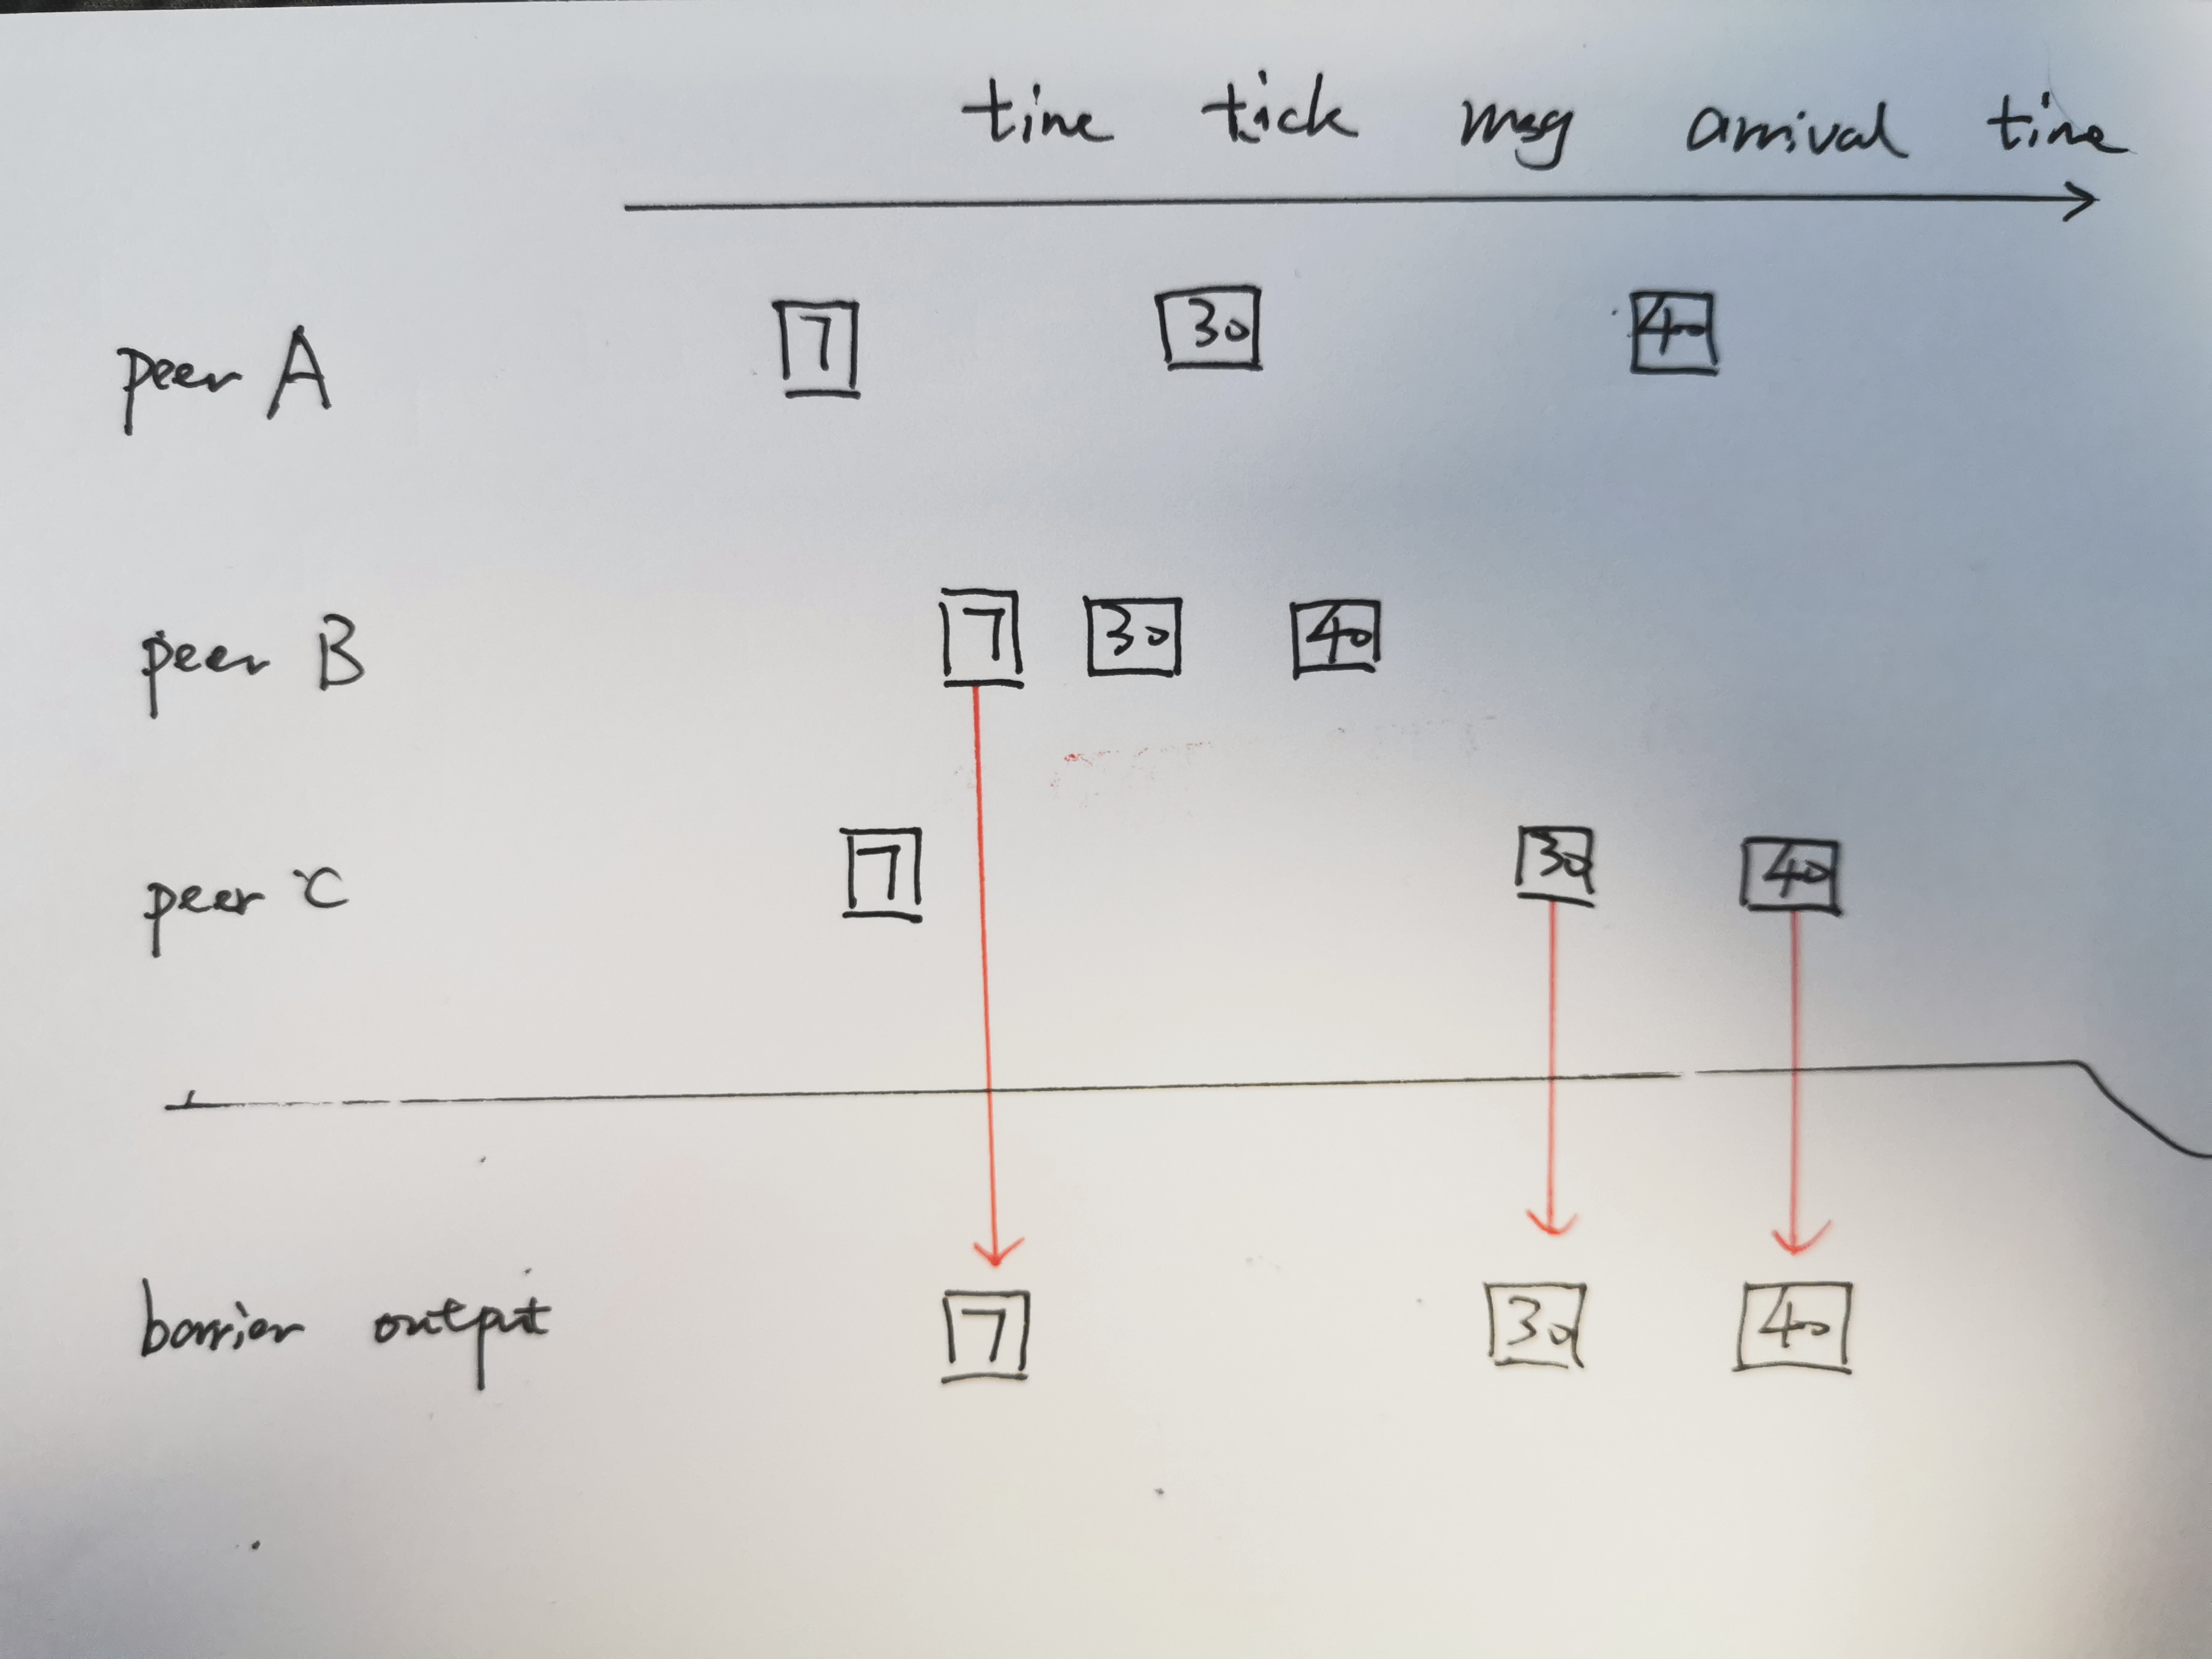 time tick msg arrival time
peer A 7 30 40
peer B 7 30 40
peer C 7 30 40
barrier output 7 30 40